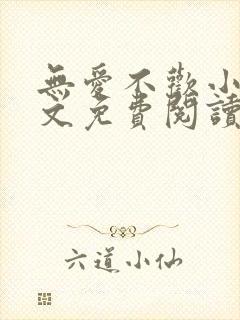 無愛不歡小
文免費閱讀
六道小仙